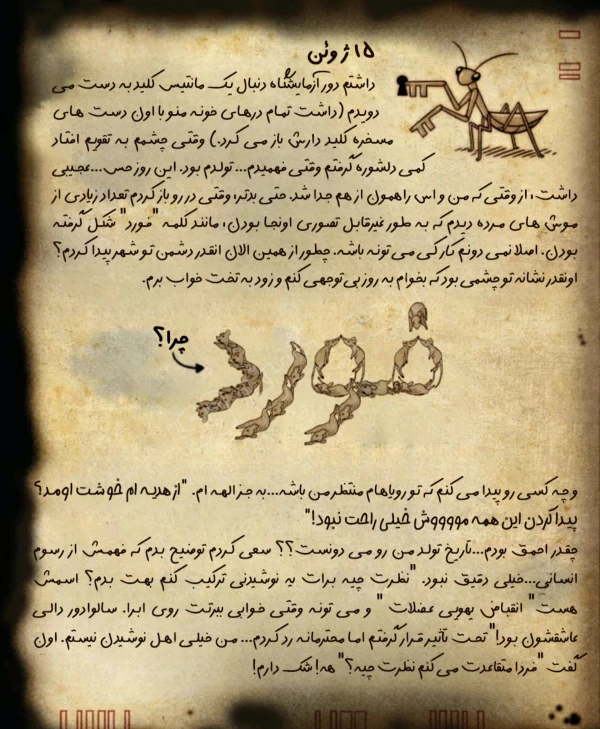 ۱۵ ژوئن
داشتم دور آزمایشگاه دنبال یک مانتیس کلید به دست می
دویدم (داشت تمام درهای خونه منو با اون دست های
مسخره کلید دارش باز می کرد.) وقتی چشمم به تقویم افتاد
کمی دلشوره گرفتم وقتی فهمیدم... تولدم بود. این روز حس...عجیبی
داشت، از وقتی که من و اس راهمون از هم جدا شد. حتی بدتر، وقتی در رو باز کردم تعداد زیادی از
موش های مرده دیدم که به طور غیرقابل تصوری اونجا بودن، مانند کلمه "فورد" شکل گرفته
بودن. اصلا نمی دونم کار کی می تونه باشه. چطور از همین الان انقدر دشمن تو شهر پیدا کردم؟
اونقدر نشانه تو چشمی بود که بخوام به روز بی توجهی کنم و زود به تخت خواب برم.
چرا؟
فورد
و چه کسی رو پیدا می کنم که تو رویاهام منتظر من باشه...به جز الهه ام. "از هدیه ام خوشت اومد؟
پیدا کردن این همه موووووش خیلی راحت نبود!"
چقدر احمق بودم...تاریخ تولد من رو می دونست؟؟ سعی کردم توضیح بدم که فهمش از رسوم
انسانی...خیلی دقیق نبود. "نظرت چیه برات یه نوشیدنی ترکیب کنم بهت بدم؟ اسمش
هست" انقباض یهویی عضلات " و می تونه وقتی خوابی ببرتت روی ابرا. سالوادور دالی
عاشقشون بود!" تحت تأثیر قرار گرفتم اما محترمانه رد کردم... من خیلی اهل نوشیدن نیستم. اون
گفت "فردا متقاعدت می کنم نظرت چیه؟" هه! شک دارم!